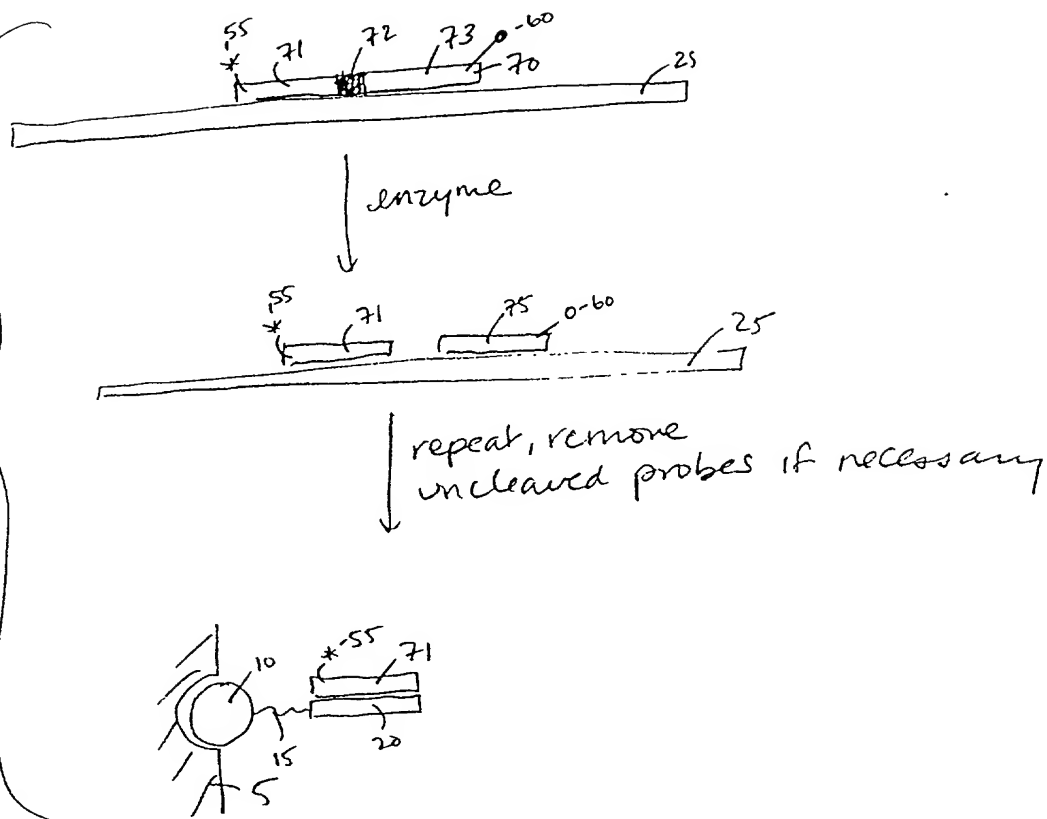 55
*
71
72
73
-60
70
25
enzyme
55
*
71
75
0-60
25
repeat, remove
uncleaved probes if necessary
*-55
71
10
15
20
5